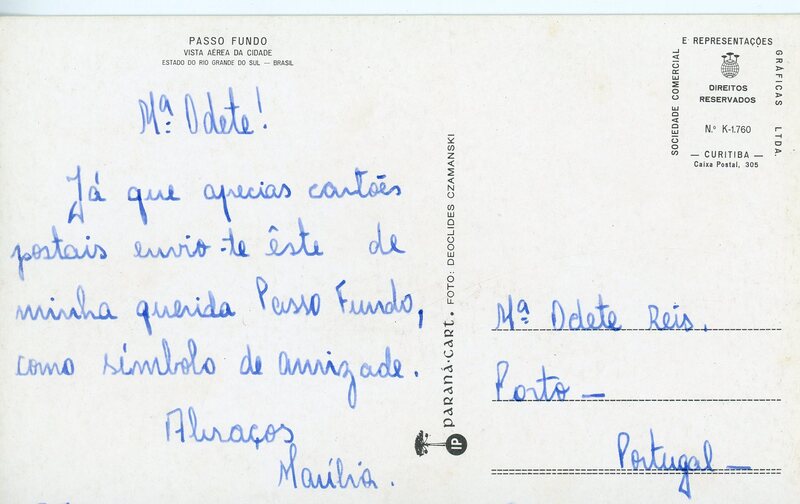 PASSO FUNDO
VISTA AÉREA DA CIDADE
ESTADO DO RIO GRANDE DO SUL — BRASIL
Mª Odete!
Já que apecias cartões
postais envio-te êste de
minha querida Passo Fundo,
como símbolo de amizade.
Abraços
Marília.
PARANÁ-CART. FOTO: DEOCLIDES CZAMANSKI
IP
SOCIEDADE COMERCIAL
E REPRESENTAÇÕES
GRÁFICAS LTDA.
DIREITOS
RESERVADOS
N.º K-1.760
— CURITIBA —
Caixa Postal, 305
Mª Odete Reis.
Porto —
Portugal —